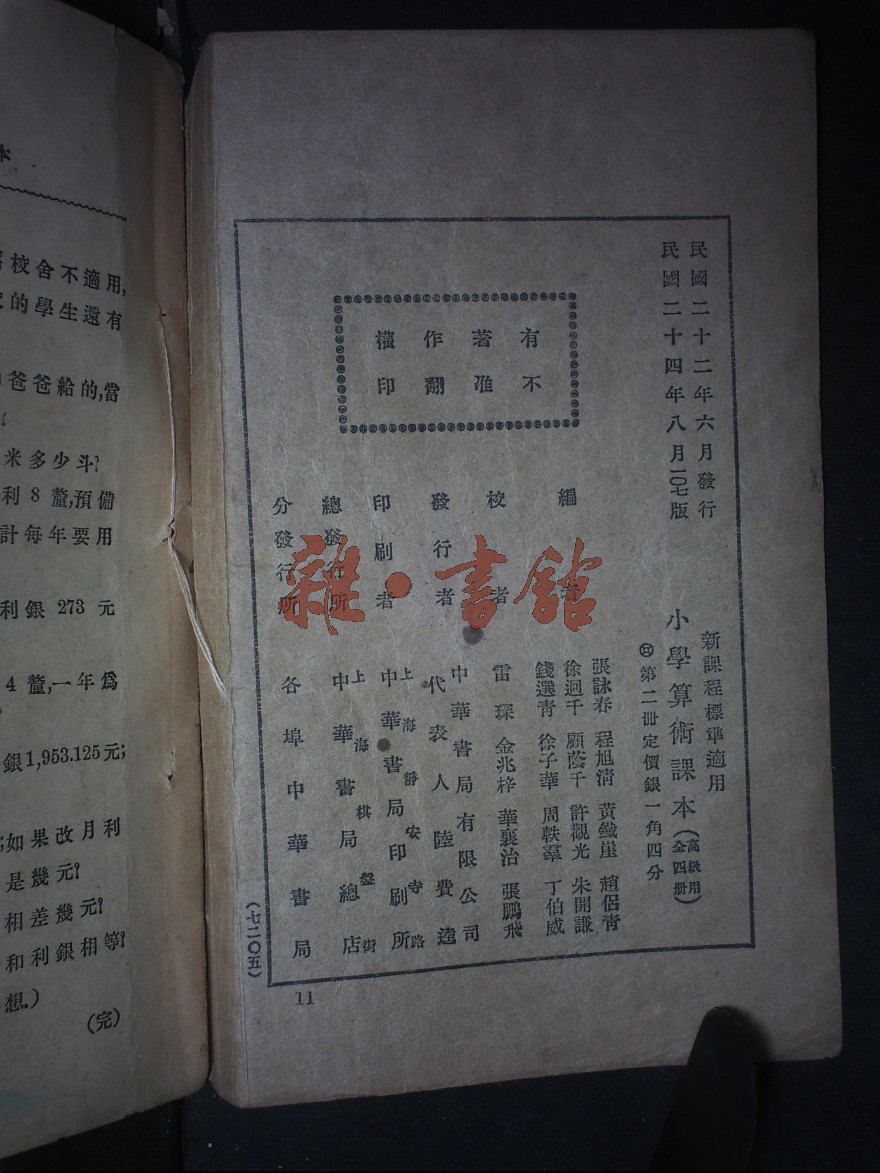 民國二十二年六月發行
民國二十四年八月一〇七版
新課程標準適用
小學算術課本(高級用全四册)
第二册定價銀一角四分
有著作權
不准翻印
編者
張詠春 程旭清 黃鐵崖 趙侶青
徐迥千 顧蔭千 許觀光 朱開謙
錢選青 徐子華 周軼羣 丁伯威
校者
雷琛 金兆梓 華襄治 張鵬飛
發行者
中華書局有限公司
代表人 陸費逵
印刷者
上海靜安寺路
中華書局印刷所
總發行所
上海棋盤街
中華書局總店
分發行所
各埠中華書局
(七二〇五)
11
雜·書館
本
校舍不適用,
的學生還有
爸爸給的,當
米多少斗?
利8釐,預備
計每年要用
利銀 273 元
4 釐,一年爲
銀1,953.125元;
;如果改月利
是幾元?
相差幾元?
和利銀相等?
想.)
(完)